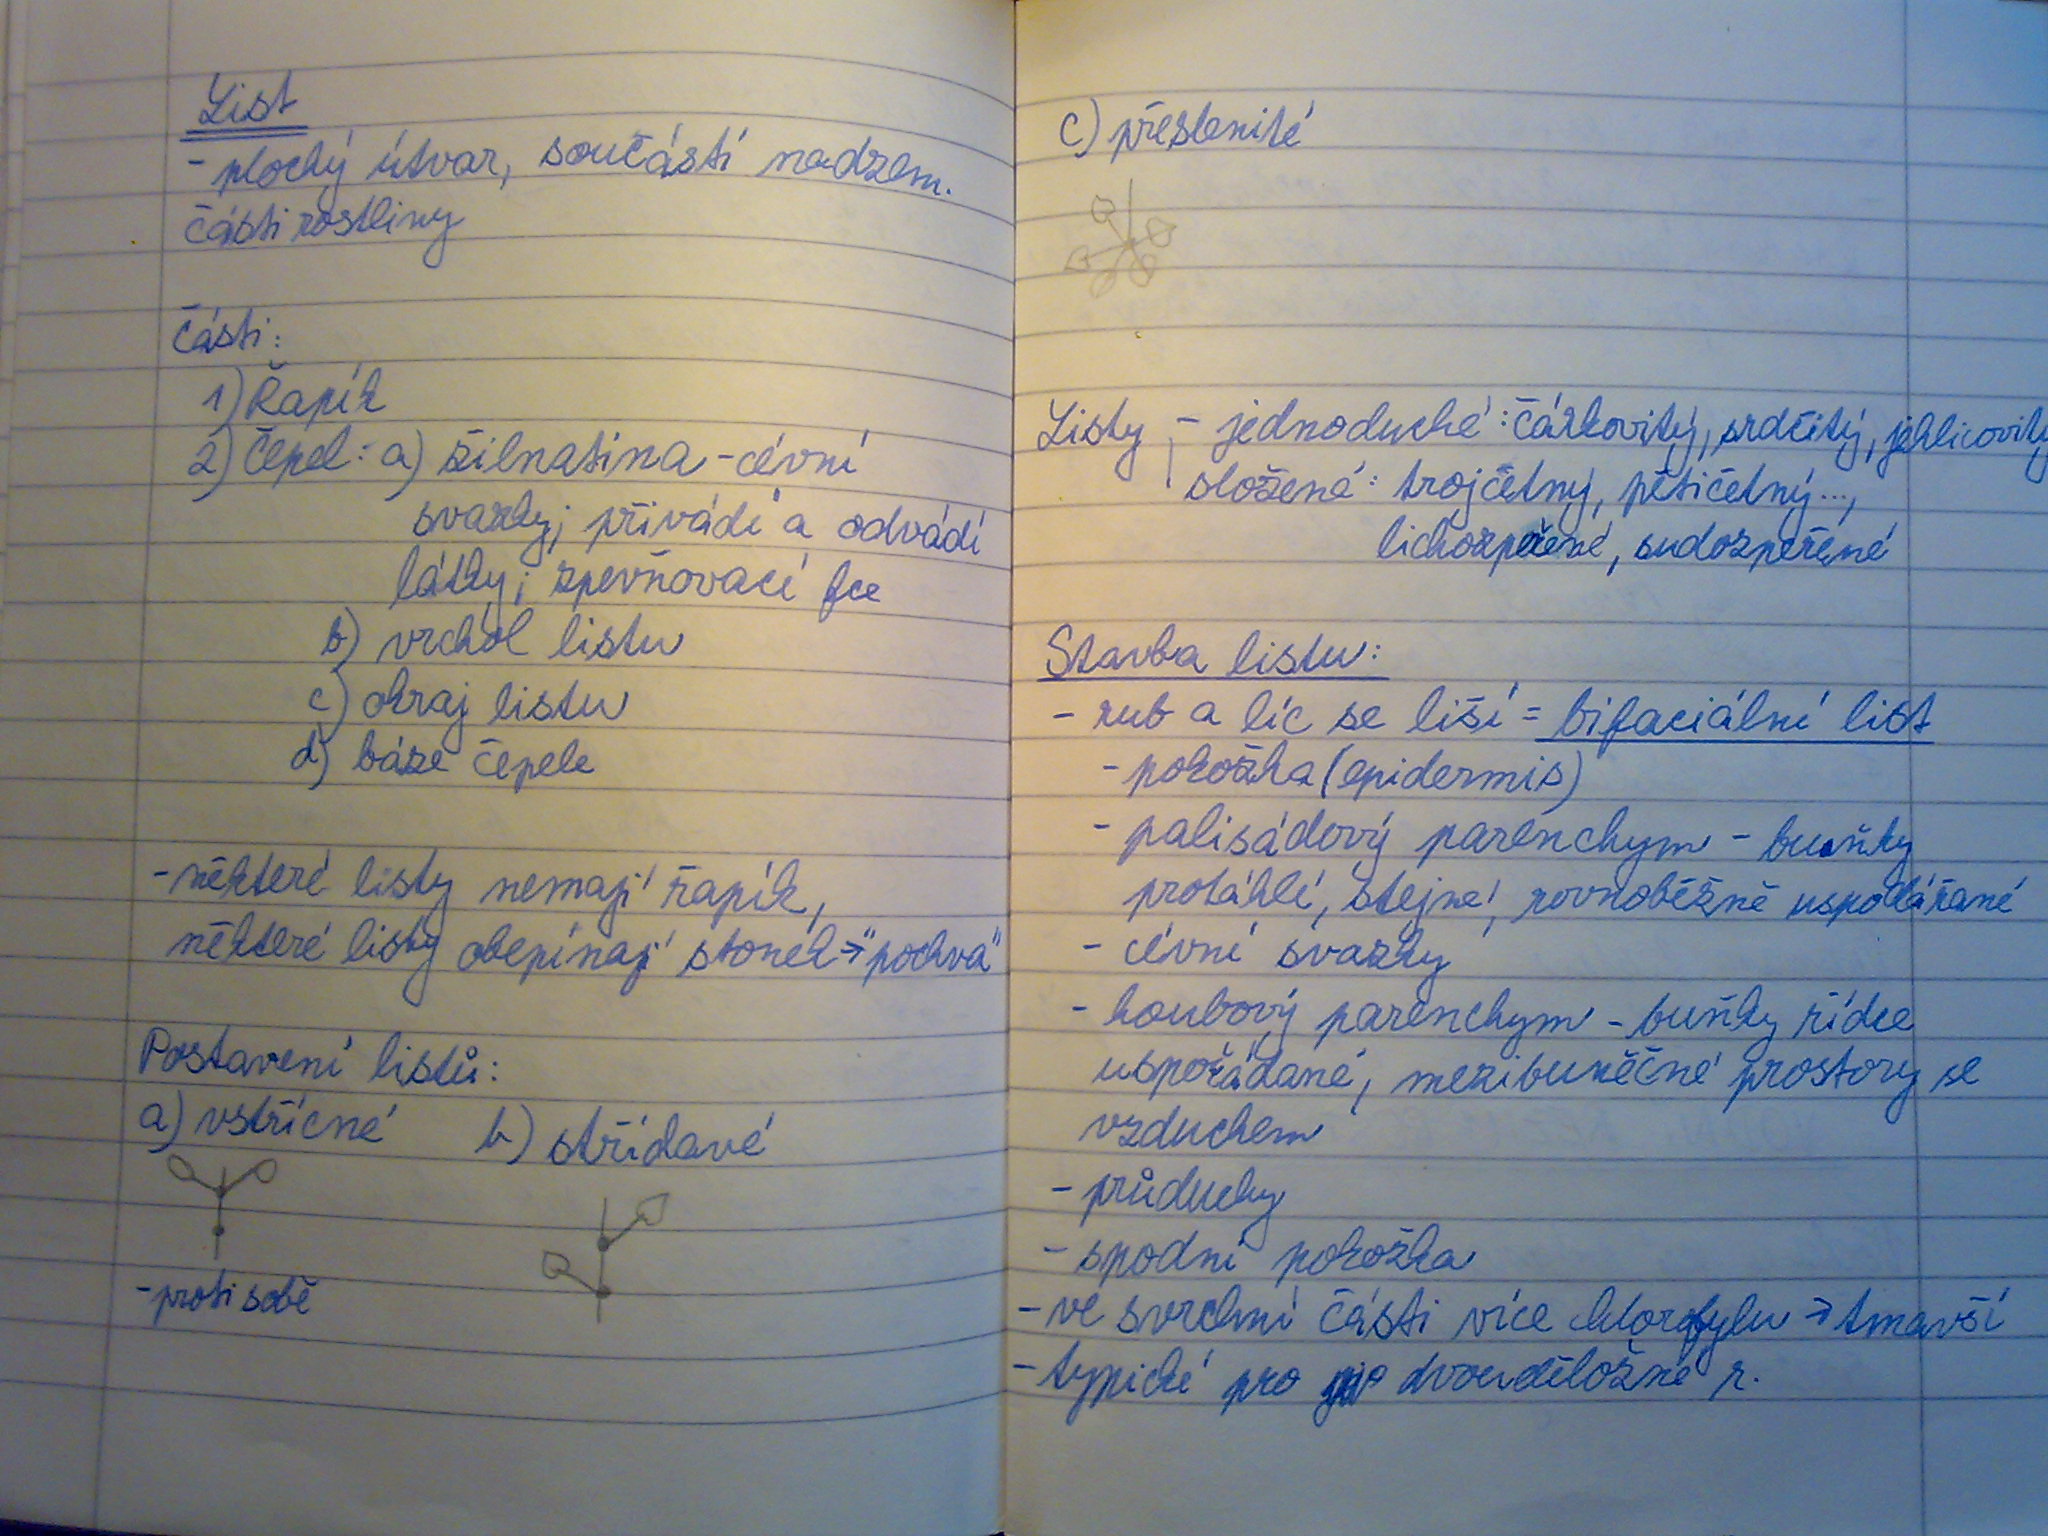 List
- plochý útvar, součástí nadzem.
části rostliny
Části:
1) Řapík
2) Čepel: a) žilnatina - cévní
svazky; přivádí a odvádí
látky; zpevňovací fce
b) vrchol listu
c) okraj listu
d) báze čepele
- některé listy nemají řapík,
některé listy obepínají stonek → "pochva"
Postavení listů:
a) vstřícné b) střídavé
- proti sobě
c) přeslenité
Listy - jednoduché: čárkovitý, srdčitý, jehlicovitý
složené: trojčetný, pětičetný...,
lichozpeřené, sudozpeřené
Stavba listu:
- rub a líc se liší = bifaciální list
- pokožka (epidermis)
- palisádový parenchym - buňky
protáhlé, stejné, rovnoběžně uspořádané
- cévní svazky
- houbový parenchym - buňky řídce
uspořádané, mezibuněčné prostory se
vzduchem
- průduchy
- spodní pokožka
- ve svrchní části více chlorofylu → tmavší
- typické pro dvouděložné r.